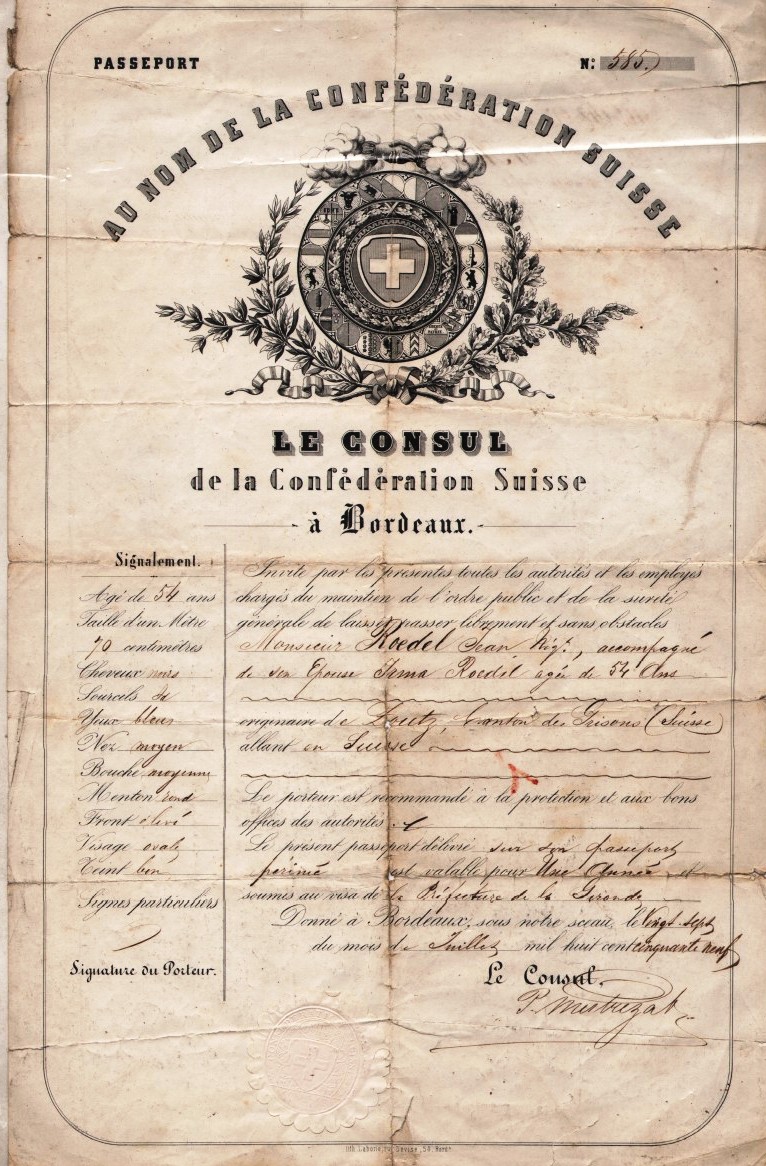 PASSEPORT
Nº: 585.
AU NOM DE LA CONFÉDÉRATION SUISSE
LE CONSUL
de la Confédération Suisse
à Bordeaux.
Signalement.
Agé de 54 ans
Taille d'un Mètre
70 centimètres
Cheveux noirs
Sourcils de
Yeux bleus
Nez moyen
Bouche moyenne
Menton rond
Front élevé
Visage ovale
Teint bon
Signes particuliers
Signature du Porteur.
Invite par les présentes toutes les autorités et les employés
chargés du maintien de l'ordre public et de la sureté
générale de laisser passer librement et sans obstacles
Monsieur Roedel Jean, accompagné
de son Epouse Irma Roedel agée de 54 Ans
originaire de Canton des Grisons (Suisse)
allant en Suisse
Le porteur est recommandé à la protection et aux bons
offices des autorités.
Le présent passeport délivré sur son passeport
périmé est valable pour Une Année, et
soumis au visa de la Préfecture de la Gironde
Donné à Bordeaux, sous notre sceau, le Vingt-sept
du mois de Juillet mil huit cent cinquante neuf
Le Consul.
P. Mestrezat